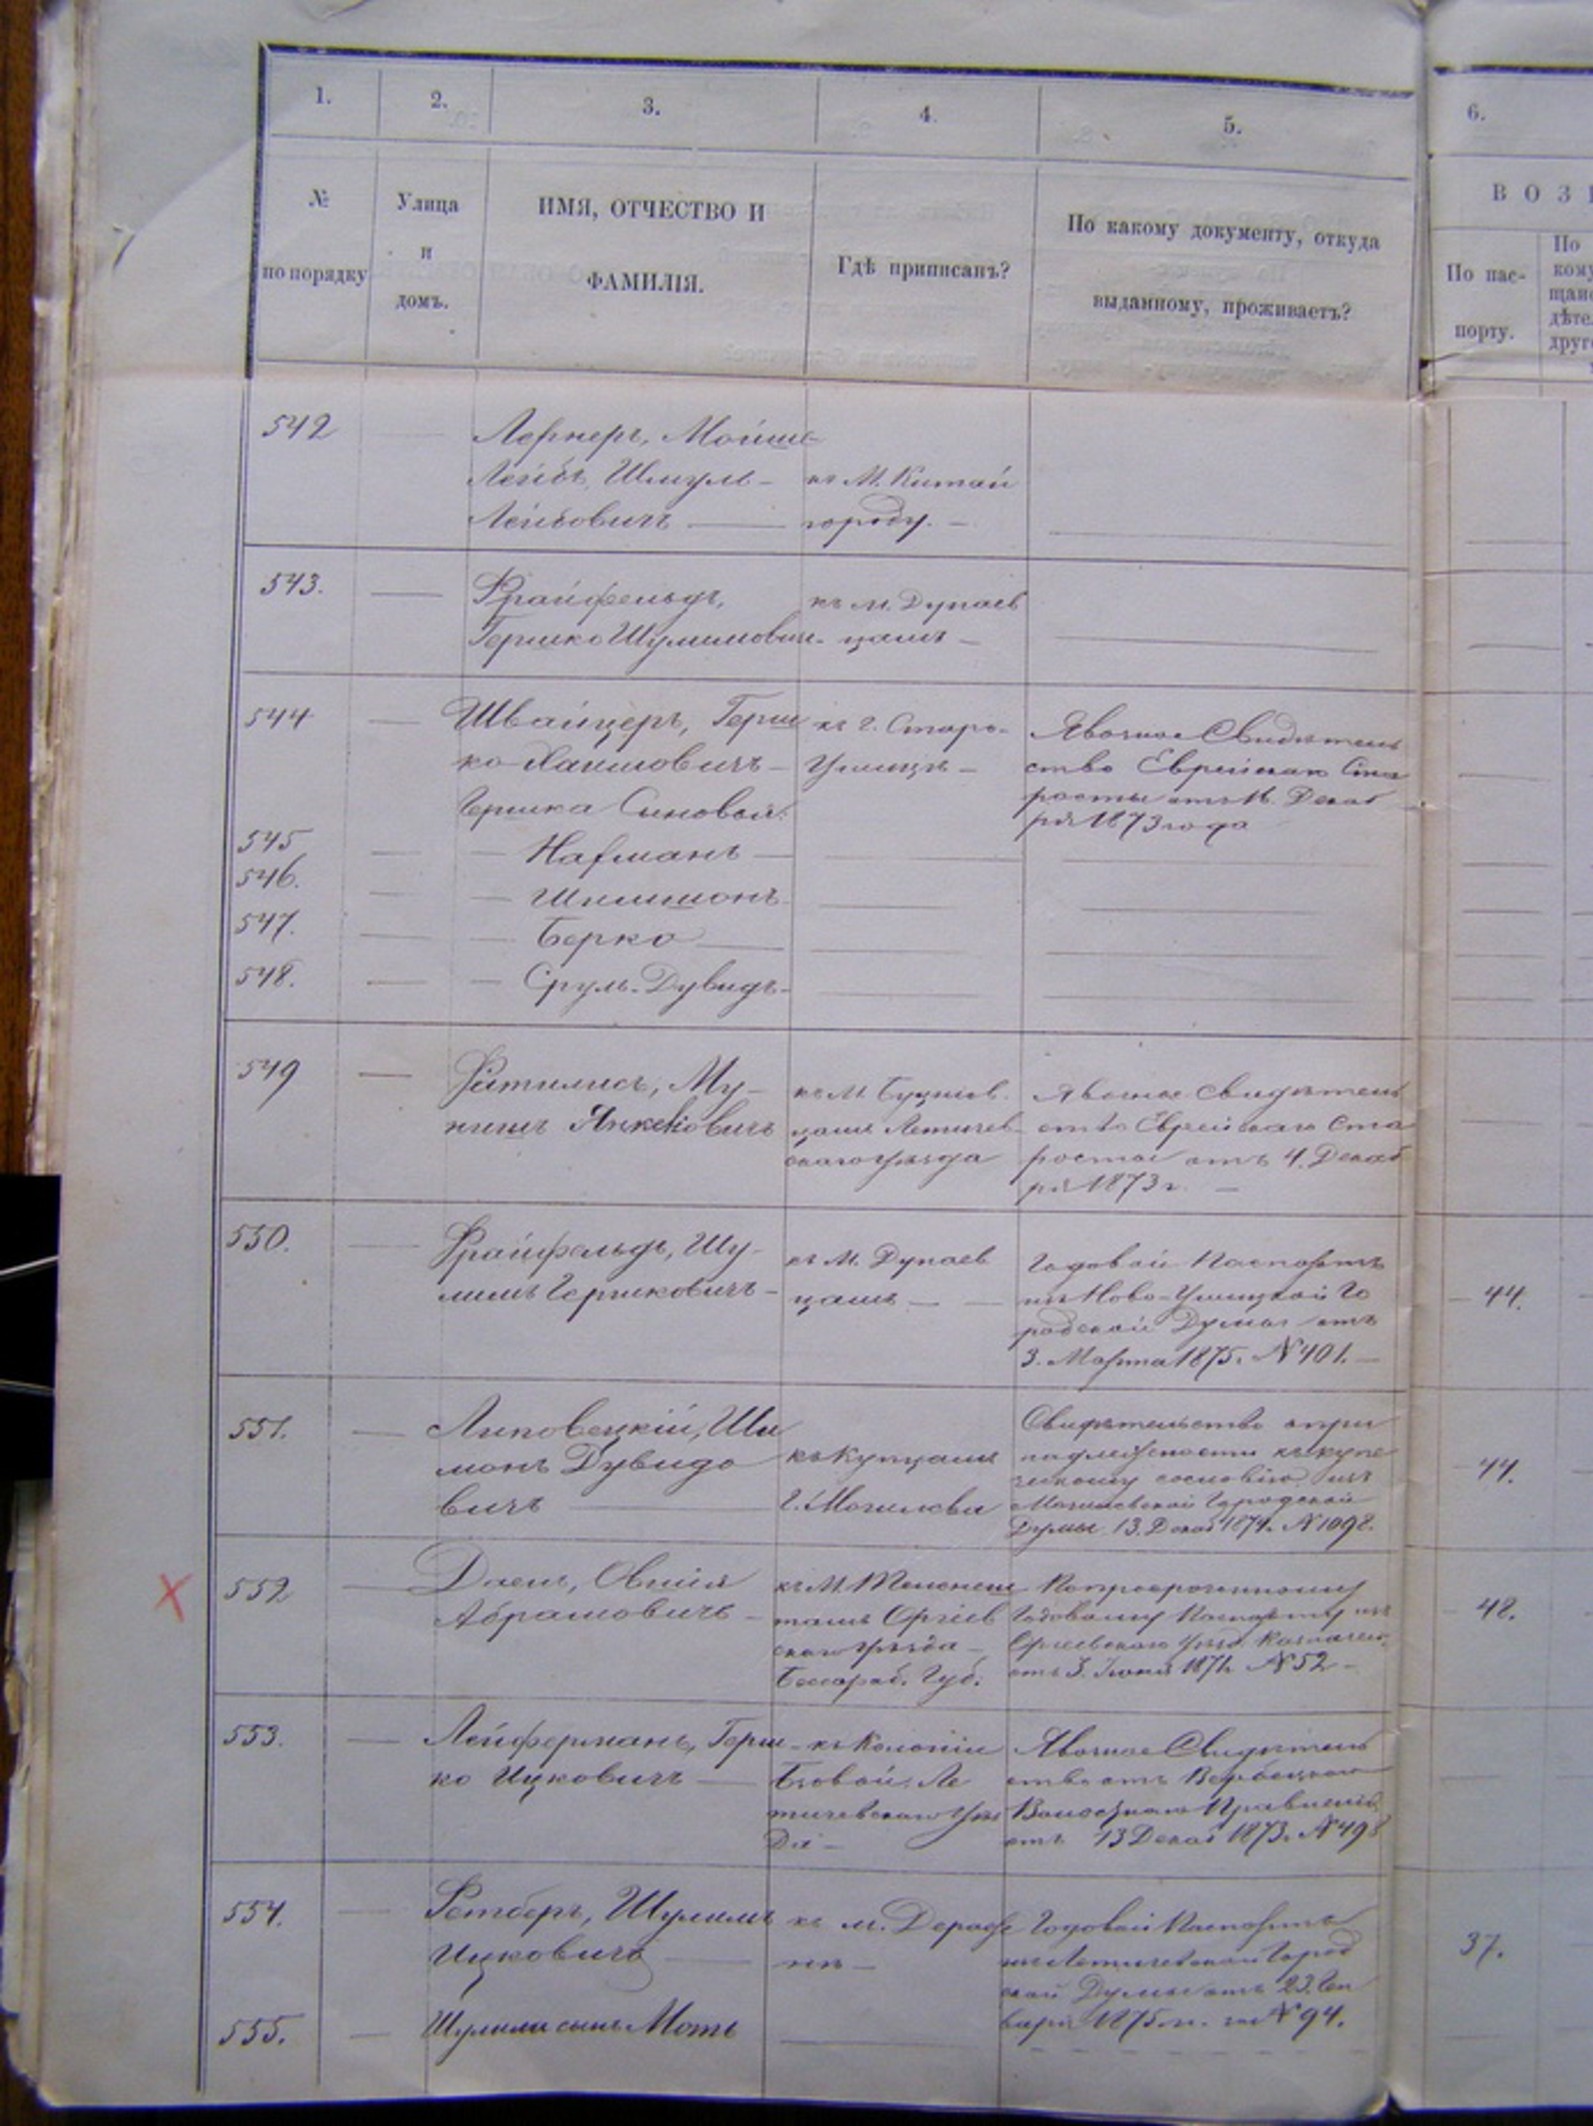 1.
2.
3.
4.
5.
6.
№
по порядку
Улица
и
домъ.
ИМЯ, ОТЧЕСТВО И
ФАМИЛІЯ.
Гдѣ приписанъ?
По какому документу, откуда
выданному, проживаетъ?
ВОЗ
По пас-
порту.
По
кому
щан
дѣте
друг
542
Лернеръ, Мойше-
Лейбъ Шмуль-
Лейбовичъ
къ М. Китай
городу.
543.
Фрайфельдъ,
Гершко Шулимович
къ м. Дунаев
цамъ
544
Швайцеръ, Герш
ко Хаимовичъ
Гершка Сыновья:
къ г. Старо-
Ушицѣ
Явочное Свидѣтель
ство Еврейскаго Ста
росты отъ 16. Декаб
ря 1873 года
545
Нахманъ
546.
Шлимонъ
547.
Берко
548.
Сруль-Дувидъ
549
Му-
нишъ Янкелёвичъ
къ М.
цамъ Летичев
скаго уѣзда
Явочное Свидѣтель
ство Еврейскаго Ста
росты отъ 4. Декаб
ря 1873 г.
550.
Фрайфельдъ, Шу-
лимъ Гершковичъ
къ М. Дунаев
цамъ
Годовой Паспортъ
изъ Ново-Ушицкой Го
родской Думы отъ
3. Марта 1875. № 401.
44.
551.
Липовецкій, Ши
монъ Дувидо
вичъ
къ Купцамъ
г. Могилева
Свидѣтельство о при
надлежности къ купе
ческому сословію изъ
Могилевской Городской
Думы 13. Декаб 1874. № 1098.
44.
552
Абрамовичъ
къ М. Теленеш
тамъ Оргіев
скаго уѣзда
Бессараб. Губ.
По просроченному
Годовому Паспорту изъ
Оргеевскаго Уѣзд. Казначей.
отъ 3. Іюня 1871. № 52
48.
553.
Лейферманъ, Герш
ко Ицковичъ
къ Колоніи
Ле
тичевскаго Уѣз
да
Явочное Свидѣтель
ство отъ Вербецкаго
Волостнаго Правленія
отъ 13 Декаб 1873. № 498
554.
Шулимъ
Ицковичъ
къ м. Дераж
нѣ
Годовой Паспортъ
изъ Летичевской Город
ской Думы отъ 23. Ген
варя 1875 г. за № 94.
37.
555.
Шулима сынъ Моть